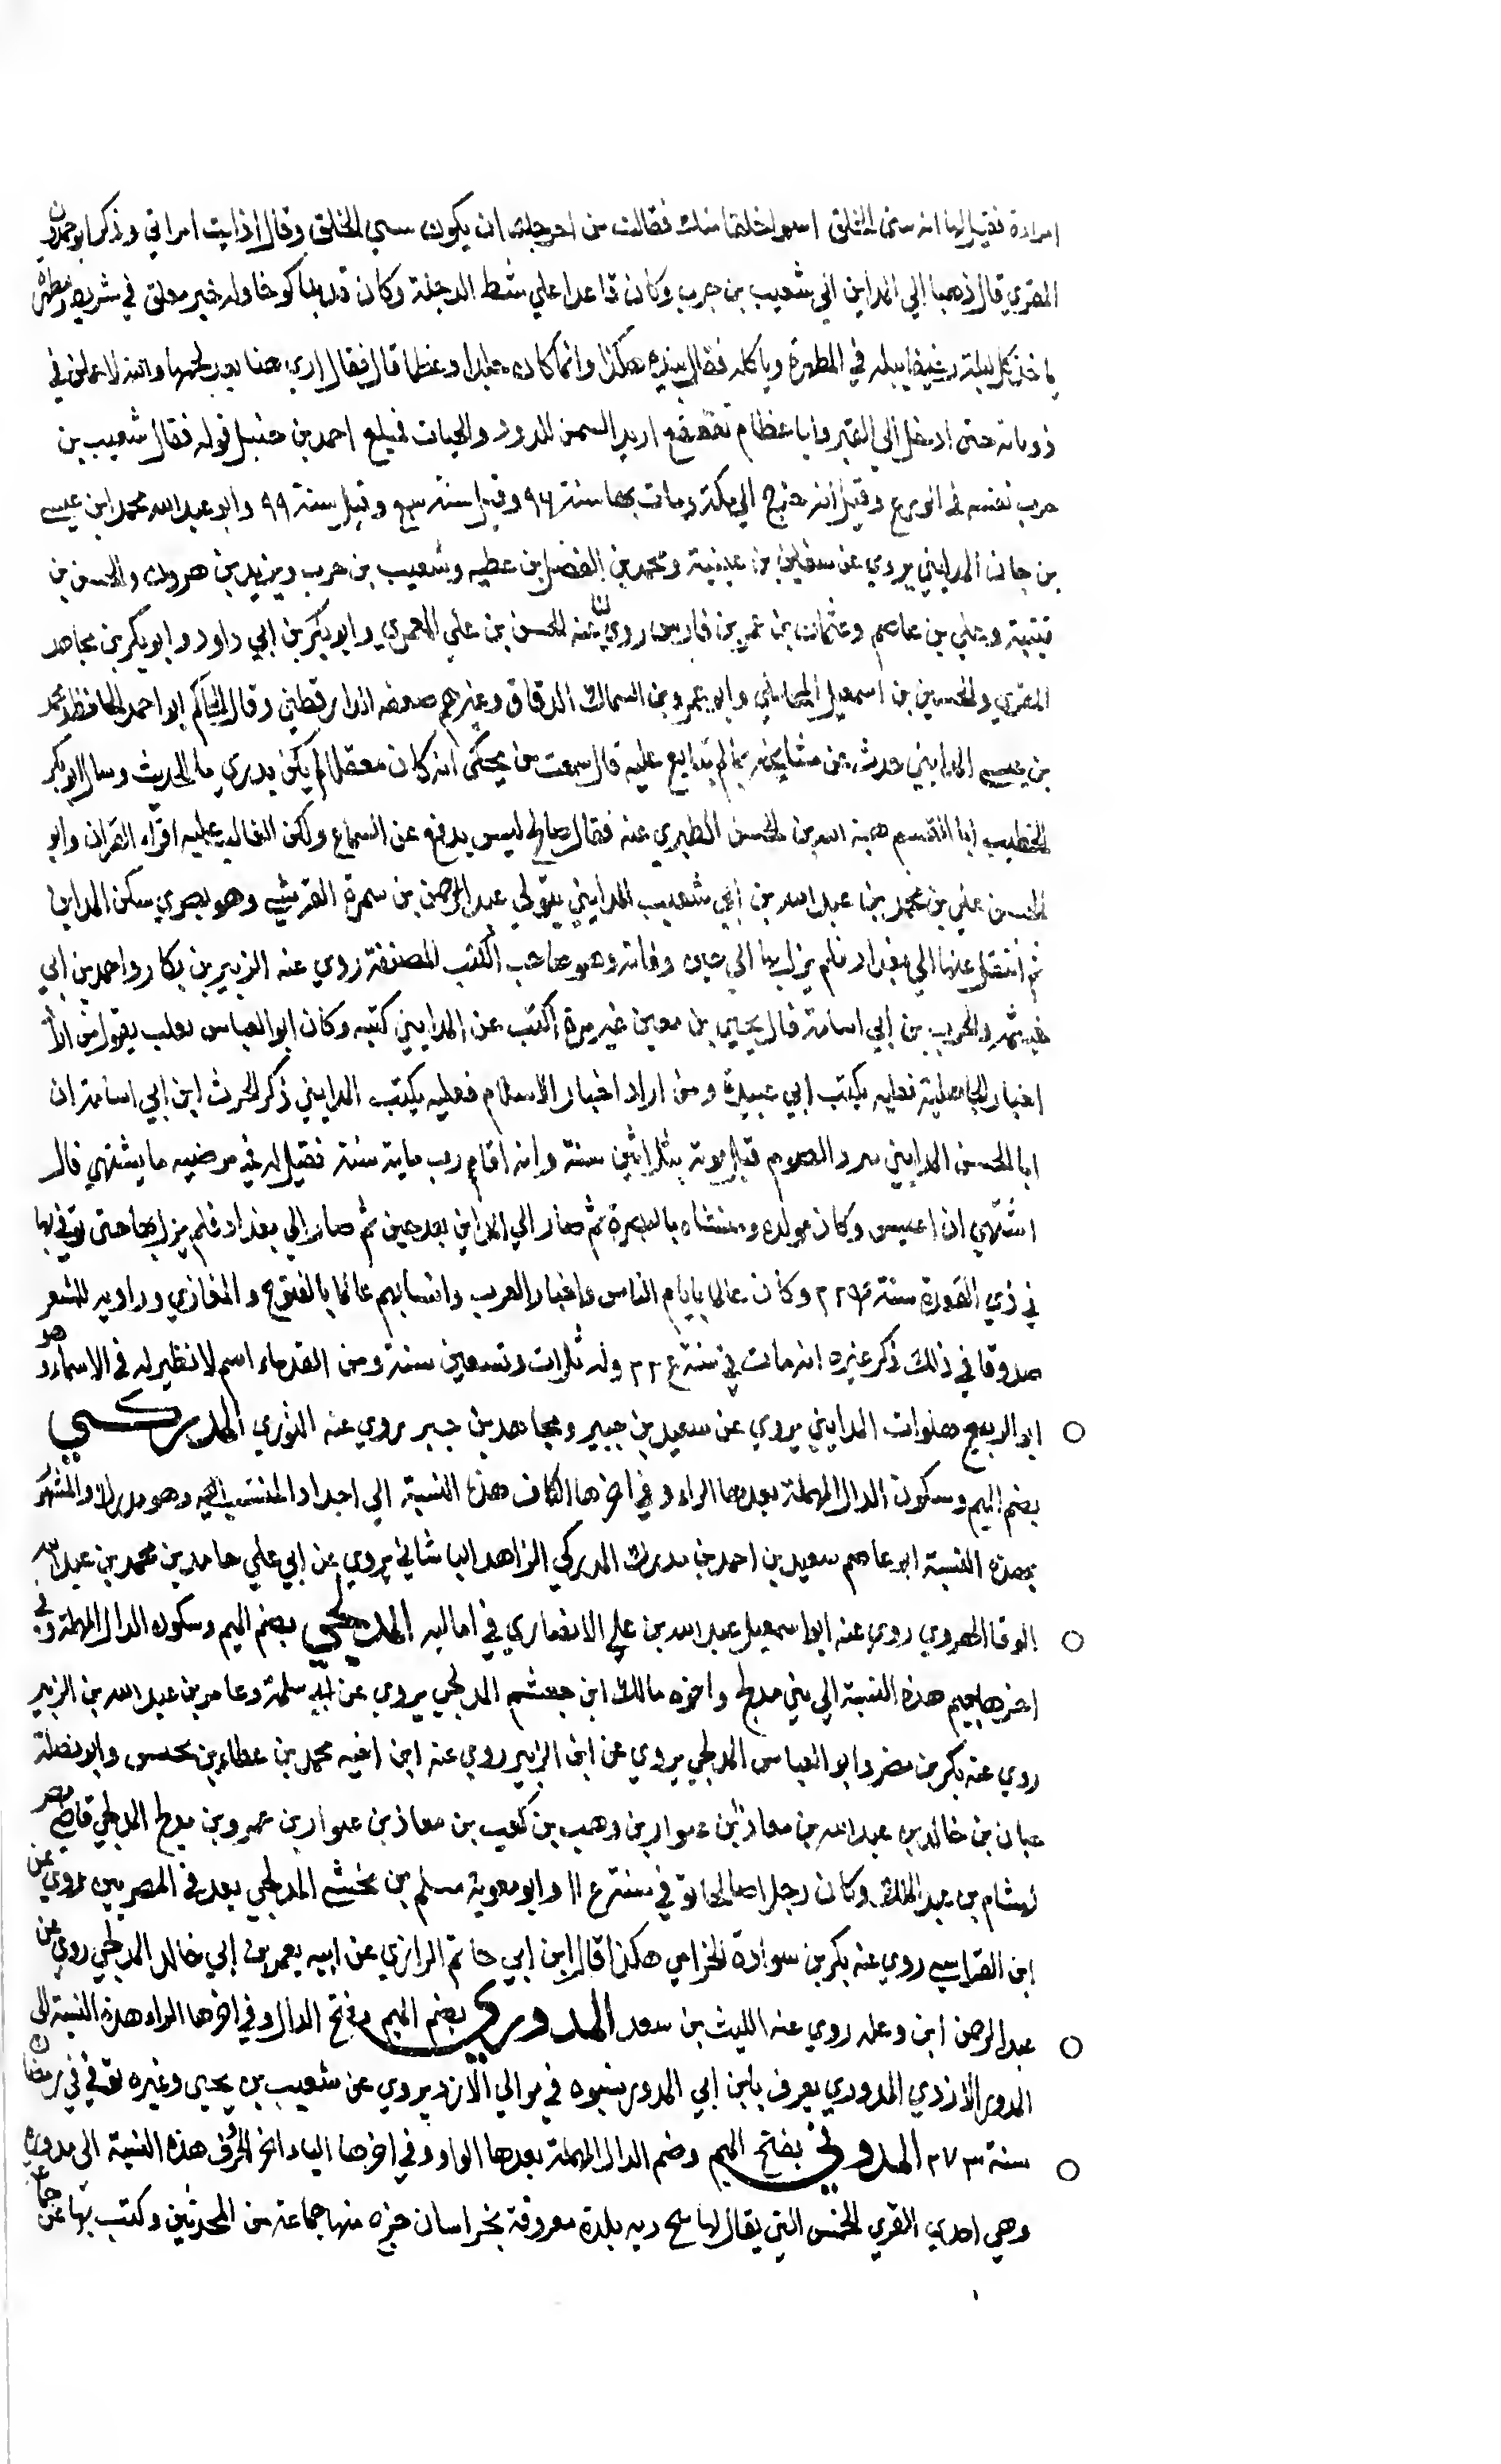 امراة فقيل لها انه سئ الخلق اسوا خلقا منك فقالت من احوجك ان يكون سيى الخلق وقال اذا انت امراتي وذكر ابو حمدون
المقري قال ذهبنا الي المداين الي شعيب بن حرب وكان قاعدا علي شط الدجلة وكان قد بنا كوخا وله خبز معلق في شريط ومطهرة
ياخذ كل ليلة رغيفا يبله في المطهرة وياكله فقال بيده هكذا وانما كان جلدا وعظما قال فقال اري هنا بعد لحما والله لاعملن في
ذوبانه حتى ادخل الي القبر وانا عظام تقعقع اريد السمن للدود والحيات فبلغ احمد بن حنبل قوله فقال شعيب بن
حرب نفسه في الورع وقيل انه خرج الي مكة ومات بها سنة ٩٦ وقيل سنة سبع وقيل سنة ٩٩ وابو عبد الله محمد ابن عيسى
بن حان المدايني يروي عن سفين بن عيينة ومحمد بن الفضل بن عطيه وشعيب بن حرب ويزيد بن هرون والحسن بن
قتيبة وعلي بن عاصم وعثمان بن عمر بن فارس روي عنه الحسن بن علي المعمري وابو بكر بن ابي داود وابو بكر بن مجاهد
المقري والحسين بن اسمعيل المحاملي وابو عمرو بن السماك الدقاق وغيرهم ضعفه الدارقطني وقال الحاكم ابو احمد الحافظ محمد
بن عيسى المدايني حدث عن مشايخه بما لم يتابع عليه قال سمعت من يحكي انه كان مغفلا لم يكن يدري ما الحديث وسال ابو بكر
الخطيب ابا القسم هبة الله بن الحسن الطبري عنه فقال صالح ليس يدفع عن السماع ولكن الغالب عليه اقراء القران وابو
الحسن علي بن محمد بن عبد الله بن ابي شعيب المدايني يتولي عبد الرحمن بن سمرة القرشي وهو بصري سكن المداين
ثم انتقل عنها الي بغداد فلم يزل بها الي حين وفاته وهو صاحب الكتب المصنفة روي عنه الزبير بن بكار واحمد بن ابي
خيثمه والحرث بن ابي اسامة قال يحيي بن معين غير مرة اكتب عن المدايني كتبه وكان ابو العباس ثعلب يقول من اراد
اخبار الجاهلية فعليه بكتب ابي عبيدة ومن اراد اخبار الاسلام فعليه بكتب المدايني ذكر الحرث ابن ابي اسامة ان
ابا الحسن المدايني سرد الصوم قبل موته بثلاثين سنة وانه اقام رب ماية سنة فقيل له في مرضه ما يشتهي قال
اشتهي ان اعيش وكان مولده ومنشاه بالبصرة ثم صار الي المداين بعد حين ثم صار الي بغداد فلم يزل بها حتى توفي بها
في ذي القعدة سنة ٢٢٥ وكان عالما بايام الناس واخبار العرب وانسابهم عالما بالفتوح والمغازي ورواية للشعر
صدوقا في ذلك ذكر غيره انه مات في سنة ٢٢٤ وله ثلاث وتسعين سنة ومن القدماء اسم لا نظير له في الاسماء وهو
ابو الربيع صلوات المدايني يروي عن سعيد بن جبير ومجاهد بن جبر يروي عنه الثوري المدركي
بضم الميم وسكون الدال المهملة بعدها الراء وفي اخرها الكاف هذه النسبة الي اجداد المنتسب اليه وهو مدرك والمشهور
بهذه النسبة ابو عاصم سعيد بن احمد بن مدرك المدركي الزاهد الباشاني يروي عن ابي علي حامد بن محمد بن عبد الله
الوفا الهروي روي عنه ابوا سمعيل عبد الله بن علي الانصاري في اماليه المدلجي بضم الميم وسكون الدال المهملة وفي
اخرها جيم هذه النسبة الي بني مدلج واخوه مالك ابن جعشم المدلجي يروي عن ابيه سلمة وعامر بن عبد الله بن الزبير
روي عنه بكر بن مضر وابو العباس المدلجي يروي عن ابن الزبير روي عنه ابن اخيه محمد بن عطاء بن محسن وابو نضلة
عبان بن خالد بن عبد الله بن معاذ ابن عوار بن وهب بن كعب بن معاذ بن عوار بن عمرو بن مدلج المدلجي قاضي مصر
لهشام بن عبد الملك وكان رجلا صالحا توفي سنة ١١٤ وابو معوية مسلم بن مخشي المدلجي يعد في المصريين يروي عن
ابن الفراسي روي عنه بكر بن سوادة الحزامي هكذا قال ابن ابي حاتم الرازي عن ابيه يعمر بن ابي خالد المدلجي روي عن
عبد الرحمن ابن وعله روي عنه الليث بن سعد المدوري بضم الميم وفتح الدال وفي اخرها الراء هذه النسبة الى
المدور الازدي المدوري يعرف بابن ابي المدور نسبوه في موالي الازد يروي عن شعيب بن يحيى وغيره توفي في رمضان
سنة ٢٧٣ المدوني بفتح الميم وضم الدال المهملة بعدها الواو وفي اخرها الياء اخر الحرف هذه النسبة الى مدوه
وهي احدي القري الخمس التي يقال لها بنج ديه بلدة معروفة بخراسان خرج منها جماعة من المحدثين وكتب بها عن جماعة